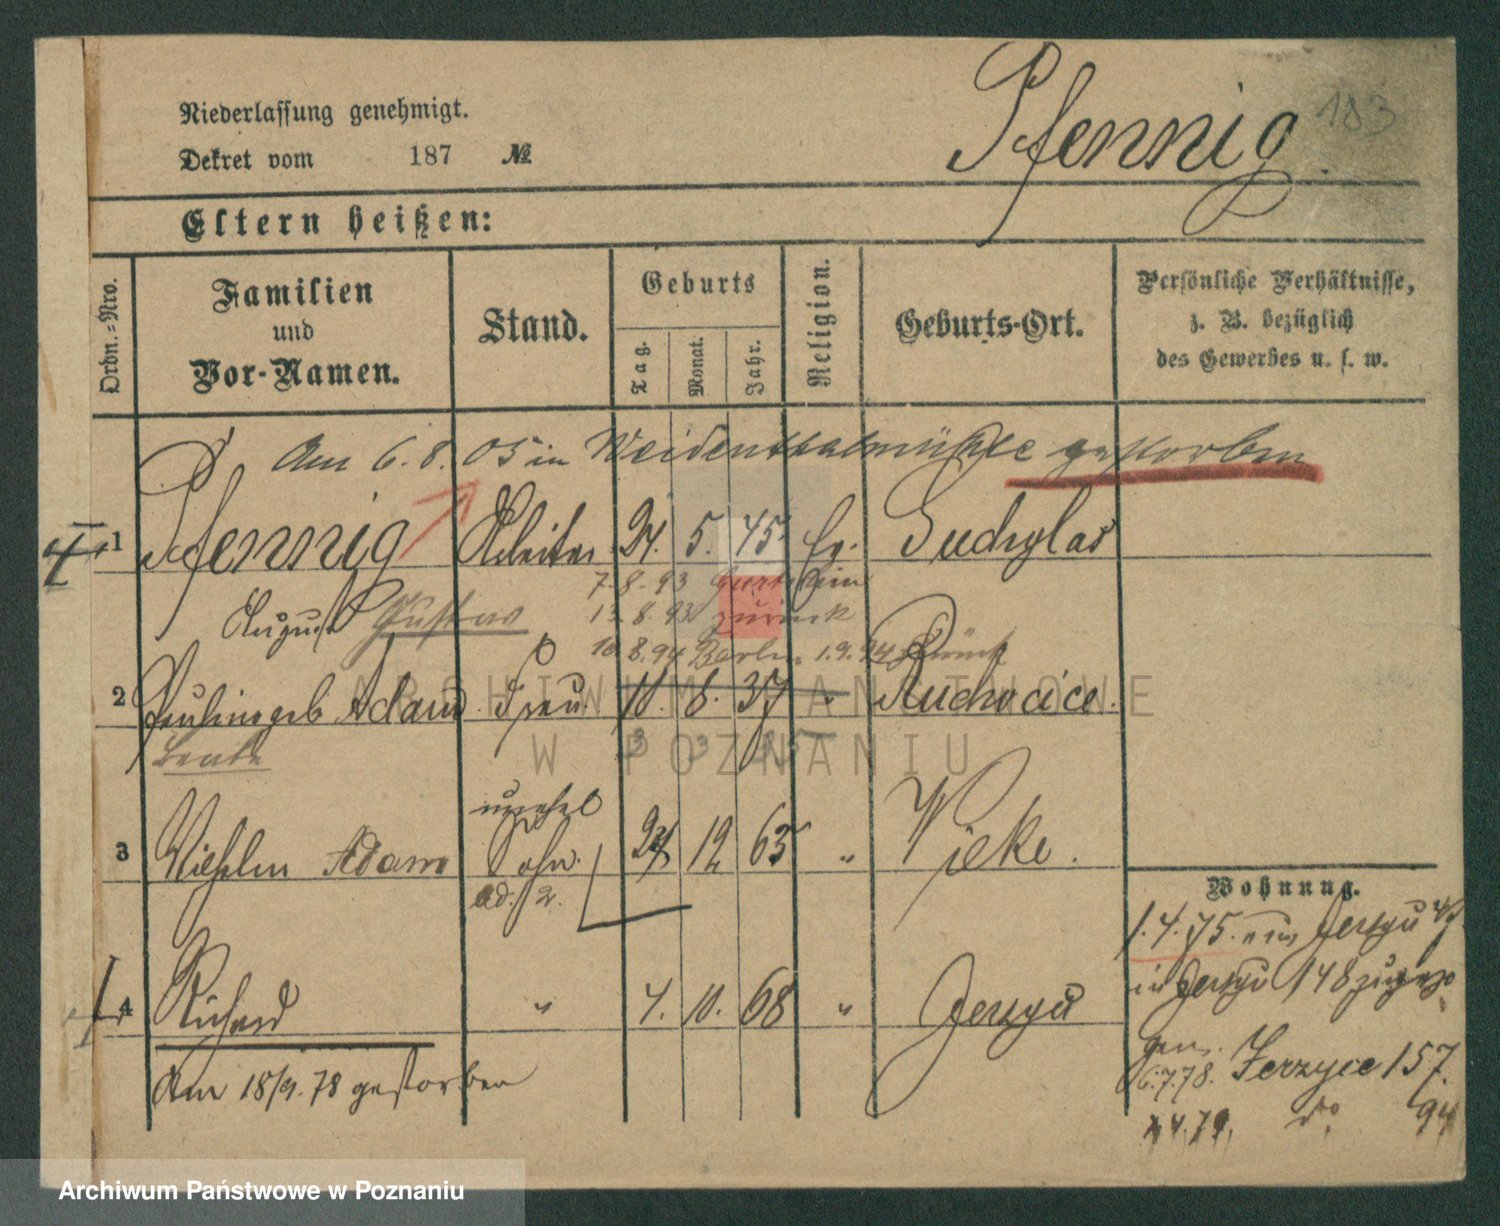 Niederlassung genehmigt.
Dekret vom 187 №
Pfennig
183
Eltern heißen:
Ordn.-Nro.
Familien und Vor-Namen.
Stand.
Geburts
Tag.
Monat.
Jahr.
Religion.
Geburts-Ort.
Persönliche Verhältnisse, z. B. bezüglich des Gewerbes u. s. w.
Am 6.8.05 in Weidenthalmühle gestorben
1 Pfennig Arbeiter 24. 5. 45. Ev.
7.8.93
August Gustav 13.8.93 zurück
10.8.94 Berlin 1.9.94 zurück
2 Pauline geb. Adam Frau. 10. 8. 37 " Ruchocice.
3 3
unehel
3 Wilhelm Adam Sohn 12 63 "
ad. 2.
Wohnung.
1.4.75. Jersyce
in Jersyce 148
4 Richard " 4. 10. 68 " Jersyce
gen.
6.7.78. Jerzyce 157.
Am 18/9.78 gestorben
4.79. do 94
ARCHIWUM PAŃSTWOWE
W POZNANIU
Archiwum Państwowe w Poznaniu